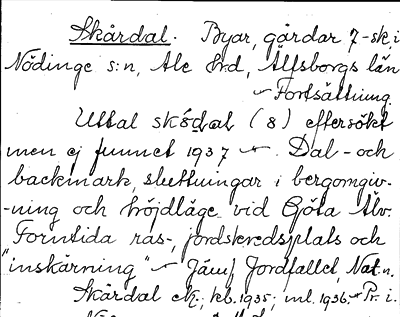 Skårdal. Byar, gårdar 7-sk, i
Nödinge s:n, Ale hrd, Älfsborgs län
Fortsättning.
Uttal skódal (8) eftersökt
men ej funnet 1937 Dal- och
backmark, sluttningar i bergomgiv-
-ning och höjdläge vid Göta Älv.
Forntida ras-, jordskredsplats och
"inskärning" Jämf Jordfallet, Nat.n.
Skårdal ek., kb. 1935, ml. 1936. Pr. i.